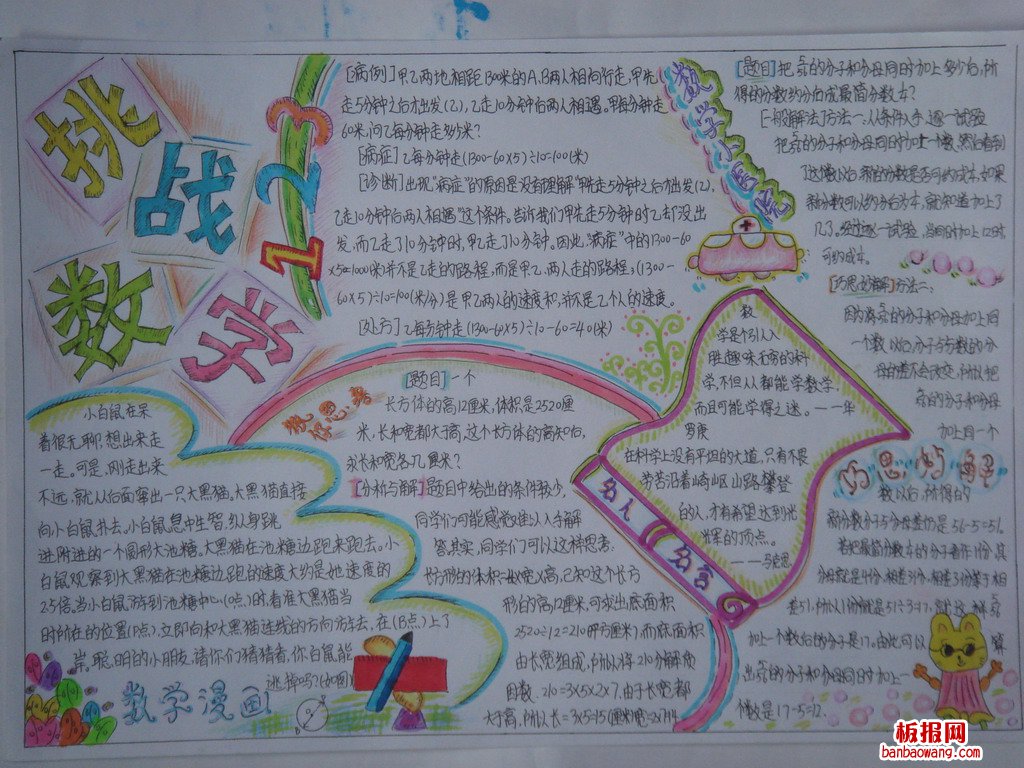 挑
战
数
学
123
[病例]甲乙两地相距1300米的A、B两人相向行走,甲先
走5分钟之后才出发(乙),乙走10分钟后两人相遇。甲每分钟走
60米,问乙每分钟走多少米?
[病症]乙每分钟走(1300-60×5)÷10=100(米)
[诊断]出现"病症"的原因是没有理解"甲先走5分钟之后才出发(乙),
乙走10分钟后两人相遇"这个条件。告诉我们甲先走5分钟时乙才没出
发,而乙走了10分钟时,甲乙走了10分钟。因此"病症"中的1300-60
×5=1000(米)并不是乙走的路程,而是甲乙两人走的路程,(1300-
60×5)÷10=100(米/分)是甲乙两人的速度和,并不是乙个人的速度。
[处方]乙每分钟走(1300-60×5)÷10-60=40(米)
数学小医院
[题目]把 的分子和分母同时加上多少后,所
得的分数约分后成最简分数 ?
[一般解法]方法一、从条件入手,逐一试验
把 的分子和分母同时加上一个数,然后看到
了12了。经过逐一试验,当同时加上12时,
可约成 。
[巧思妙解]方法二、
因为 的分子和分母加上同
一个数以后,分子与分数的分
母的差不会改变,所以把
的分子和分母
加上同一个
巧思妙解
数以后,所得的
新分数分子与分母差仍是56-5=51。
若把最简分数 的分子看作1份,其
分母就是4份,相差3份,相差3份等于相
差51,所以1份就是51÷3=17,就这样
加上一个数后的分子是17,由此可以算
出 的分子和分母同时加上一
个数是17-5=12。
数
学是个引人入
胜趣味无穷的科
学,不但人都能学数学
而且可能学得之迷。——华
罗庚
在科学上没有平坦的大道,只有不畏
劳苦沿着崎岖山路攀登
的人,才有希望达到光
辉的顶点。
——马克思
名人名言
[题目]一个
长方体的高12厘米,体积是2520厘
米,长和宽都大于高,这个长方体的高知后,
求长和宽各几厘米?
[分析与解]题目中给出的条件较少,
同学们可能感觉难以入手解
答。其实,同学们可以这样思考:
长方形的体积=长×宽×高,已知这个长方
形的高12厘米,可求出底面积
2520÷12=210(平方厘米),而底面积
由长宽组成,所以将210分解质
因数,210=3×5×2×7,由于长宽都
大于高,所以长=3×5=15(厘米)宽=2×7=14
小白鼠在呆
着很无聊,想出来走
一走。可是,刚走出来
不远,就从后面窜出一只大黑猫。大黑猫直接
向小白鼠扑去,小白鼠急中生智,纵身跳
进附近的一个圆形大池糖。大黑猫在池糖边跑来跑去。小
白鼠观察到大黑猫在池糖边跑的速度大约是她速度的
2.5倍。当小白鼠游到池糖中心(O点)时,看准大黑猫当
时所在的位置(P点),立即向和大黑猫连线的方向游去,在(B点)上了
岸。聪明的小朋友,请你们猜猜看,你白鼠能
逃掉吗?(如图)
数学漫画
板报网
banbaowang.com